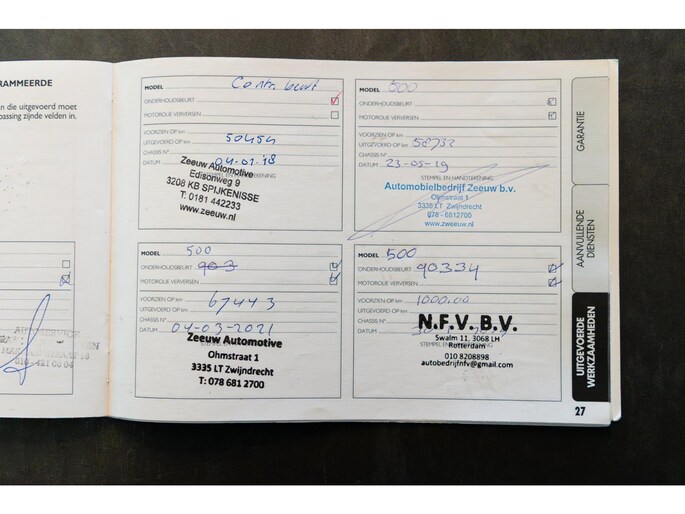 RAMMEERDE
n die uitgevoerd moet
passing zijnde velden in.
MODEL Contr. beurt
ONDERHOUDSBEURT
MOTOROLIE VERVERSEN
VOORZIEN OP km
UITGEVOERD OP km 50454
CHASSIS N°
DATUM 04-01-18
Zeeuw Automotive
Edisonweg 9
3208 KB SPIJKENISSE
T: 0181 442233
www.zeeuw.nl
MODEL 500
ONDERHOUDSBEURT
MOTOROLIE VERVERSEN
VOORZIEN OP km
UITGEVOERD OP km 58732
CHASSIS N°
DATUM 23-05-19
STEMPEL EN HANDTEKENING
Automobielbedrijf Zeeuw b.v.
Ohmstraat 1
3335 LT Zwijndrecht
078 - 6812700
www.zweeuw.nl
MODEL 500
ONDERHOUDSBEURT 903
MOTOROLIE VERVERSEN
VOORZIEN OP km
UITGEVOERD OP km 67443
CHASSIS N°
DATUM 04-03-2021
Zeeuw Automotive
Ohmstraat 1
3335 LT Zwijndrecht
T: 078 681 2700
MODEL 500
ONDERHOUDSBEURT 90334
MOTOROLIE VERVERSEN
VOORZIEN OP km 1000.00
UITGEVOERD OP km
CHASSIS N°
DATUM
N.F.V. B.V.
Swalm 11, 3068 LH
Rotterdam
010 8208898
autobedrijfnfv@gmail.com
GARANTIE
AANVULLENDE
DIENSTEN
UITGEVOERDE
WERKZAAMHEDEN
27